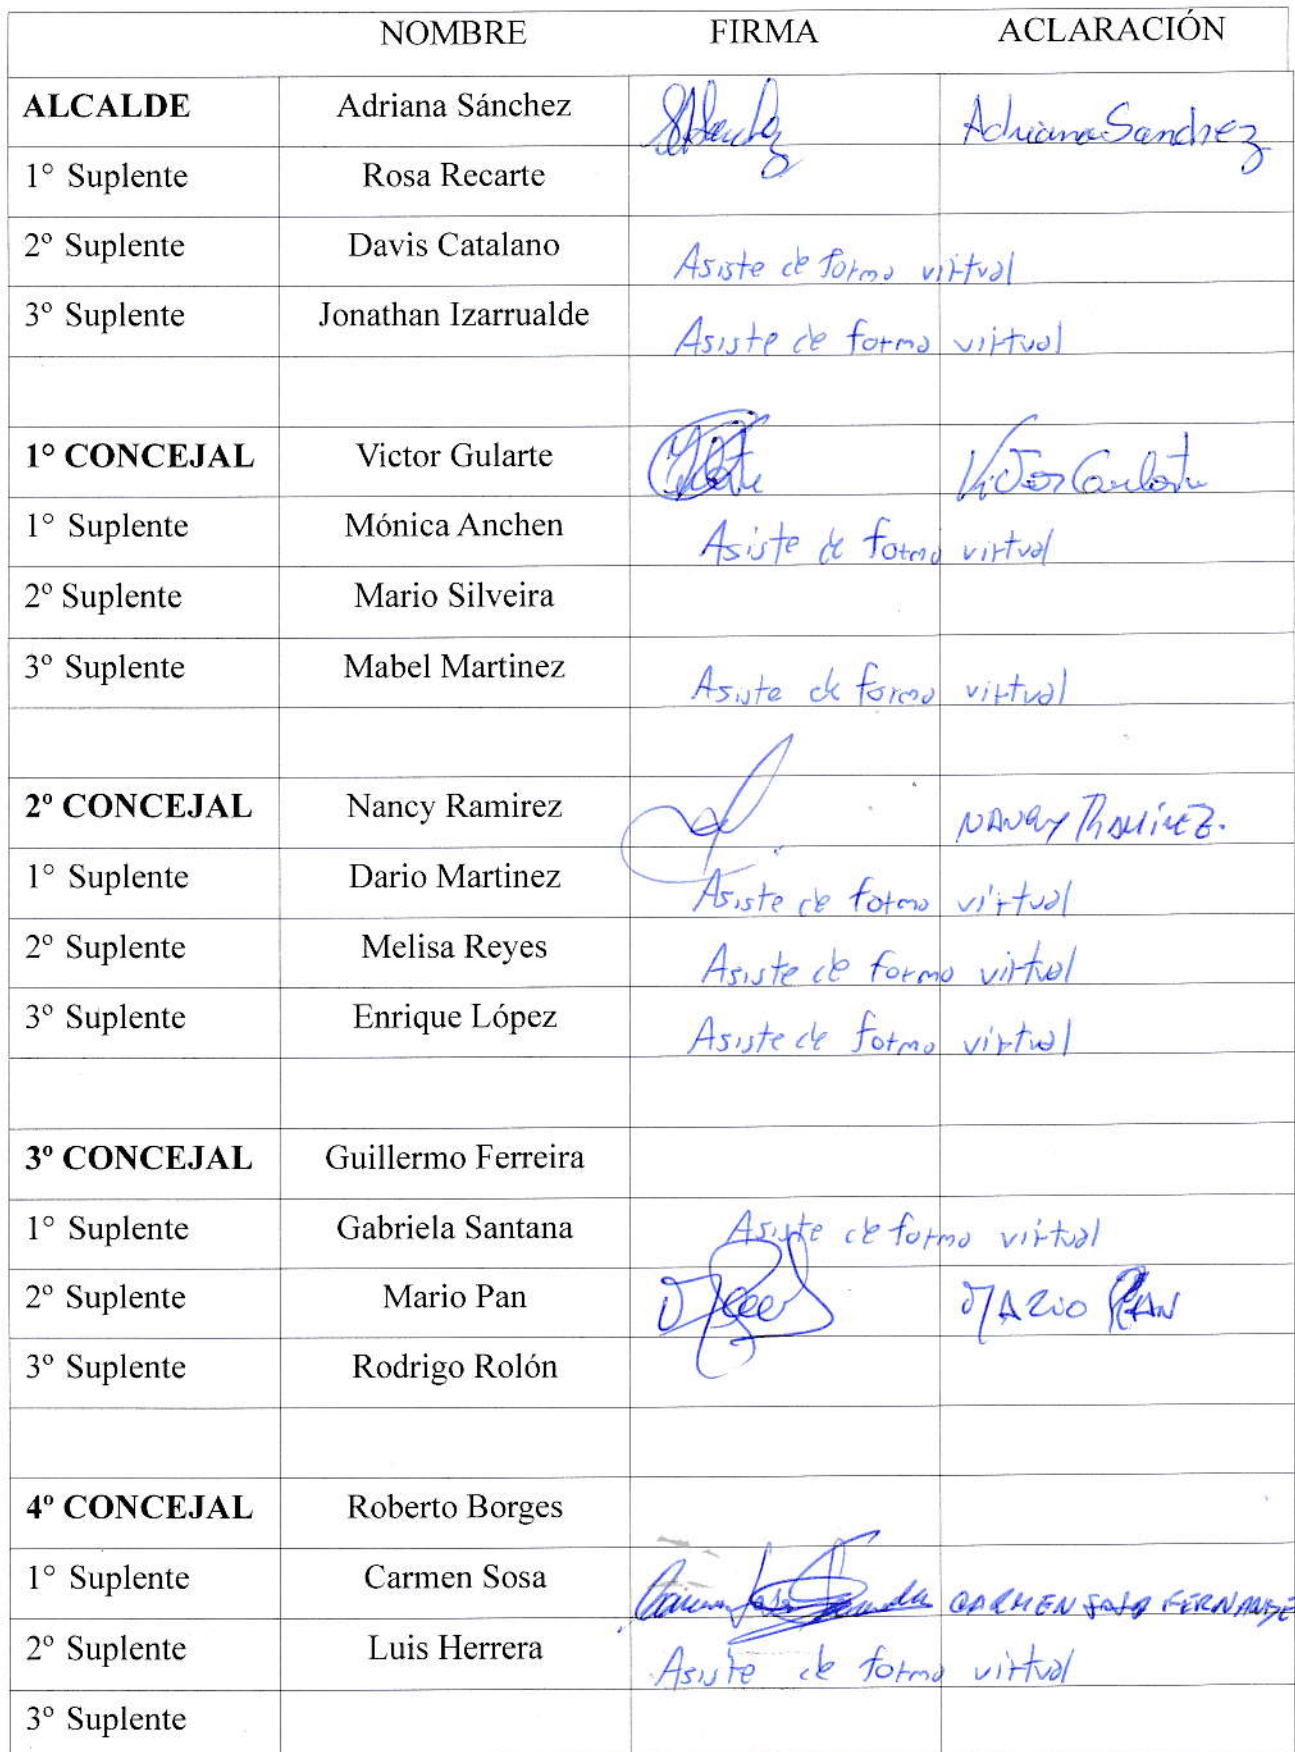 NOMBRE FIRMA ACLARACIÓN
ALCALDE Adriana Sánchez Adriana Sanchez
1° Suplente Rosa Recarte
2º Suplente Davis Catalano Asiste de forma virtual
3º Suplente Jonathan Izarrualde Asiste de forma virtual
1° CONCEJAL Victor Gularte Victor Gularte
1° Suplente Mónica Anchen Asiste de forma virtual
2º Suplente Mario Silveira
3º Suplente Mabel Martinez Asiste de forma virtual
2º CONCEJAL Nancy Ramirez NANCY RAMÍREZ.
1° Suplente Dario Martinez Asiste de forma virtual
2º Suplente Melisa Reyes Asiste de forma virtual
3º Suplente Enrique López Asiste de forma virtual
3º CONCEJAL Guillermo Ferreira
1° Suplente Gabriela Santana Asiste de forma virtual
2º Suplente Mario Pan MARIO PAN
3º Suplente Rodrigo Rolón
4º CONCEJAL Roberto Borges
1° Suplente Carmen Sosa CARMEN SOSA FERNANDE
2º Suplente Luis Herrera Asiste de forma virtual
3º Suplente